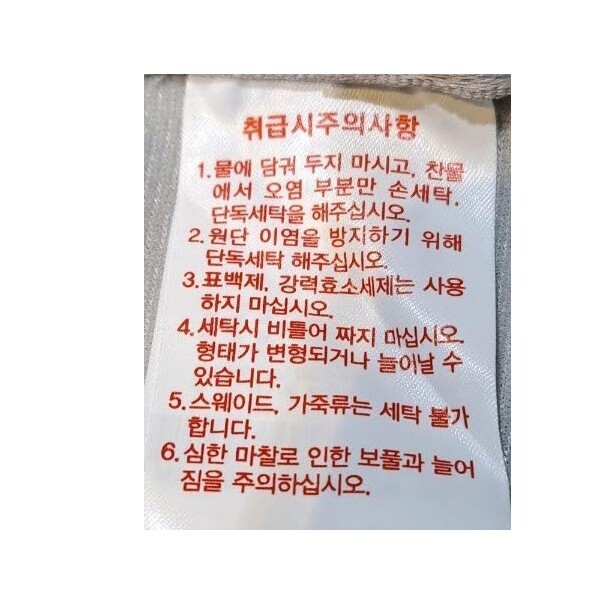 취급시주의사항
1. 물에 담궈 두지 마시고, 찬물
에서 오염 부분만 손세탁,
단독세탁을 해주십시오.
2. 원단 이염을 방지하기 위해
단독세탁 해주십시오.
3. 표백제, 강력효소세제는 사용
하지 마십시오.
4. 세탁시 비틀어 짜지 마십시오.
형태가 변형되거나 늘어날 수
있습니다.
5. 스웨이드, 가죽류는 세탁 불가
합니다.
6. 심한 마찰로 인한 보풀과 늘어
짐을 주의하십시오.